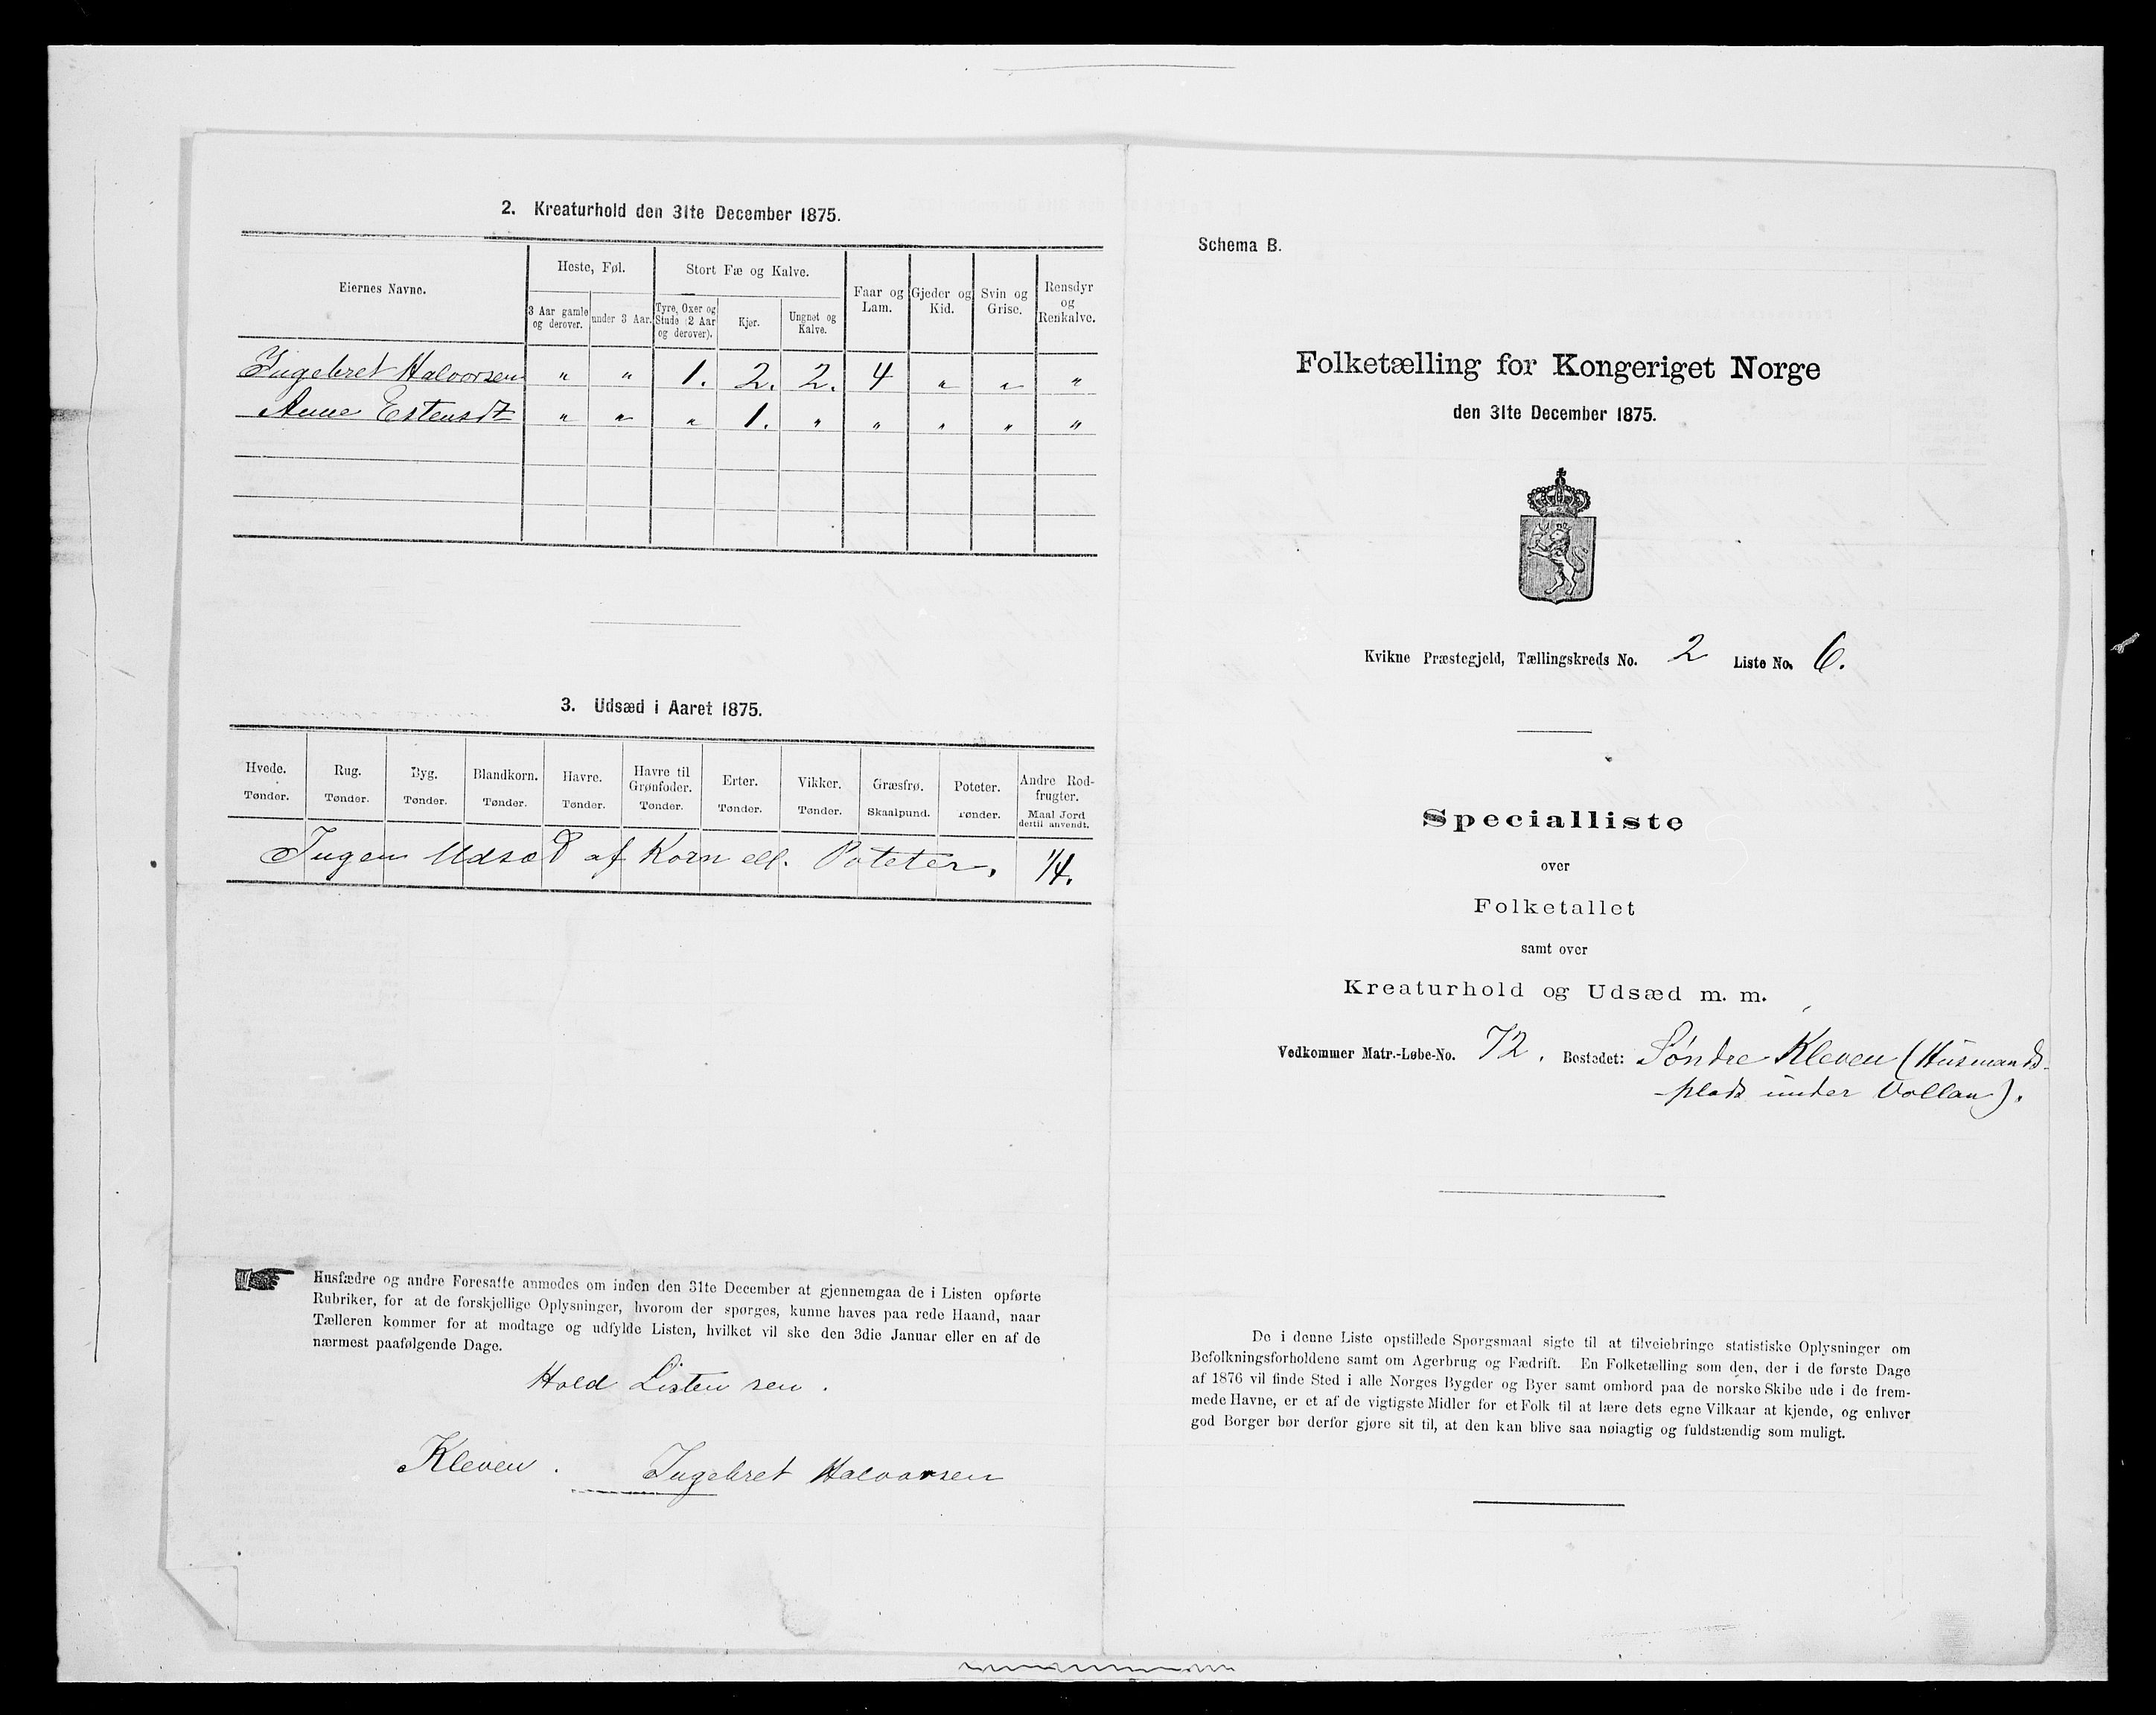 2. Kreaturhold den 31te December 1875.
Eiernes Navne.
Heste, Føl.
Stort Fæ og Kalve.
Faar og Lam.
Gjeder og Kid.
Svin og Grise.
Rensdyr og Renkalve.
3 Aar gamle og derover.
under 3 Aar.
Tyre, Oxer og Stude (2 Aar og derover).
Kjør.
Ungnøt og Kalve.
Ingebret Halvorsen " " 1. 2. 2. 4 " " "
Anne Estensdt " " " 1. " " " " "
3. Udsæd i Aaret 1875.
Hvede. Rug. Byg. Blandkorn. Havre. Havre til Grønfoder. Erter. Vikker. Græsfrø. Poteter. Andre Rodfrugter.
Tønder. Tønder. Tønder. Tønder. Tønder. Tønder. Tønder. Tønder. Skaalpund. Tønder. Maal Jord dertil anvendt.
Ingen Udsæd af Korn ell. Poteter. 1/4.
Husfædre og andre Foresatte anmodes om inden den 31te December at gjennemgaa de i Listen opførte
Rubriker, for at de forskjellige Oplysninger, hvorom der spørges, kunne haves paa rede Haand, naar
Tælleren kommer for at modtage og udfylde Listen, hvilket vil ske den 3die Januar eller en af de
nærmest paafølgende Dage.
Hold Listen ren.
Kleven. Ingebret Halvorsen
Schema B.
Folketælling for Kongeriget Norge
den 31te December 1875.
Kvikne Præstegjeld, Tællingskreds No. 2 Liste No. 6.
Specialliste
over
Folketallet
samt over
Kreaturhold og Udsæd m. m.
Vedkommer Matr.-Løbe-No. 72. Bostedet: Søndre Kleven (Husmands-
-plads under Vollan).
De i denne Liste opstillede Spørgsmaal sigte til at tilveiebringe statistiske Oplysninger om
Befolkningsforholdene samt om Agerbrug og Fædrift. En Folketælling som den, der i de første Dage
af 1876 vil finde Sted i alle Norges Bygder og Byer samt ombord paa de norske Skibe ude i de frem-
mede Havne, er et af de vigtigste Midler for et Folk til at lære dets egne Vilkaar at kjende, og enhver
god Borger bør derfor gjøre sit til, at den kan blive saa nøiagtig og fuldstændig som muligt.